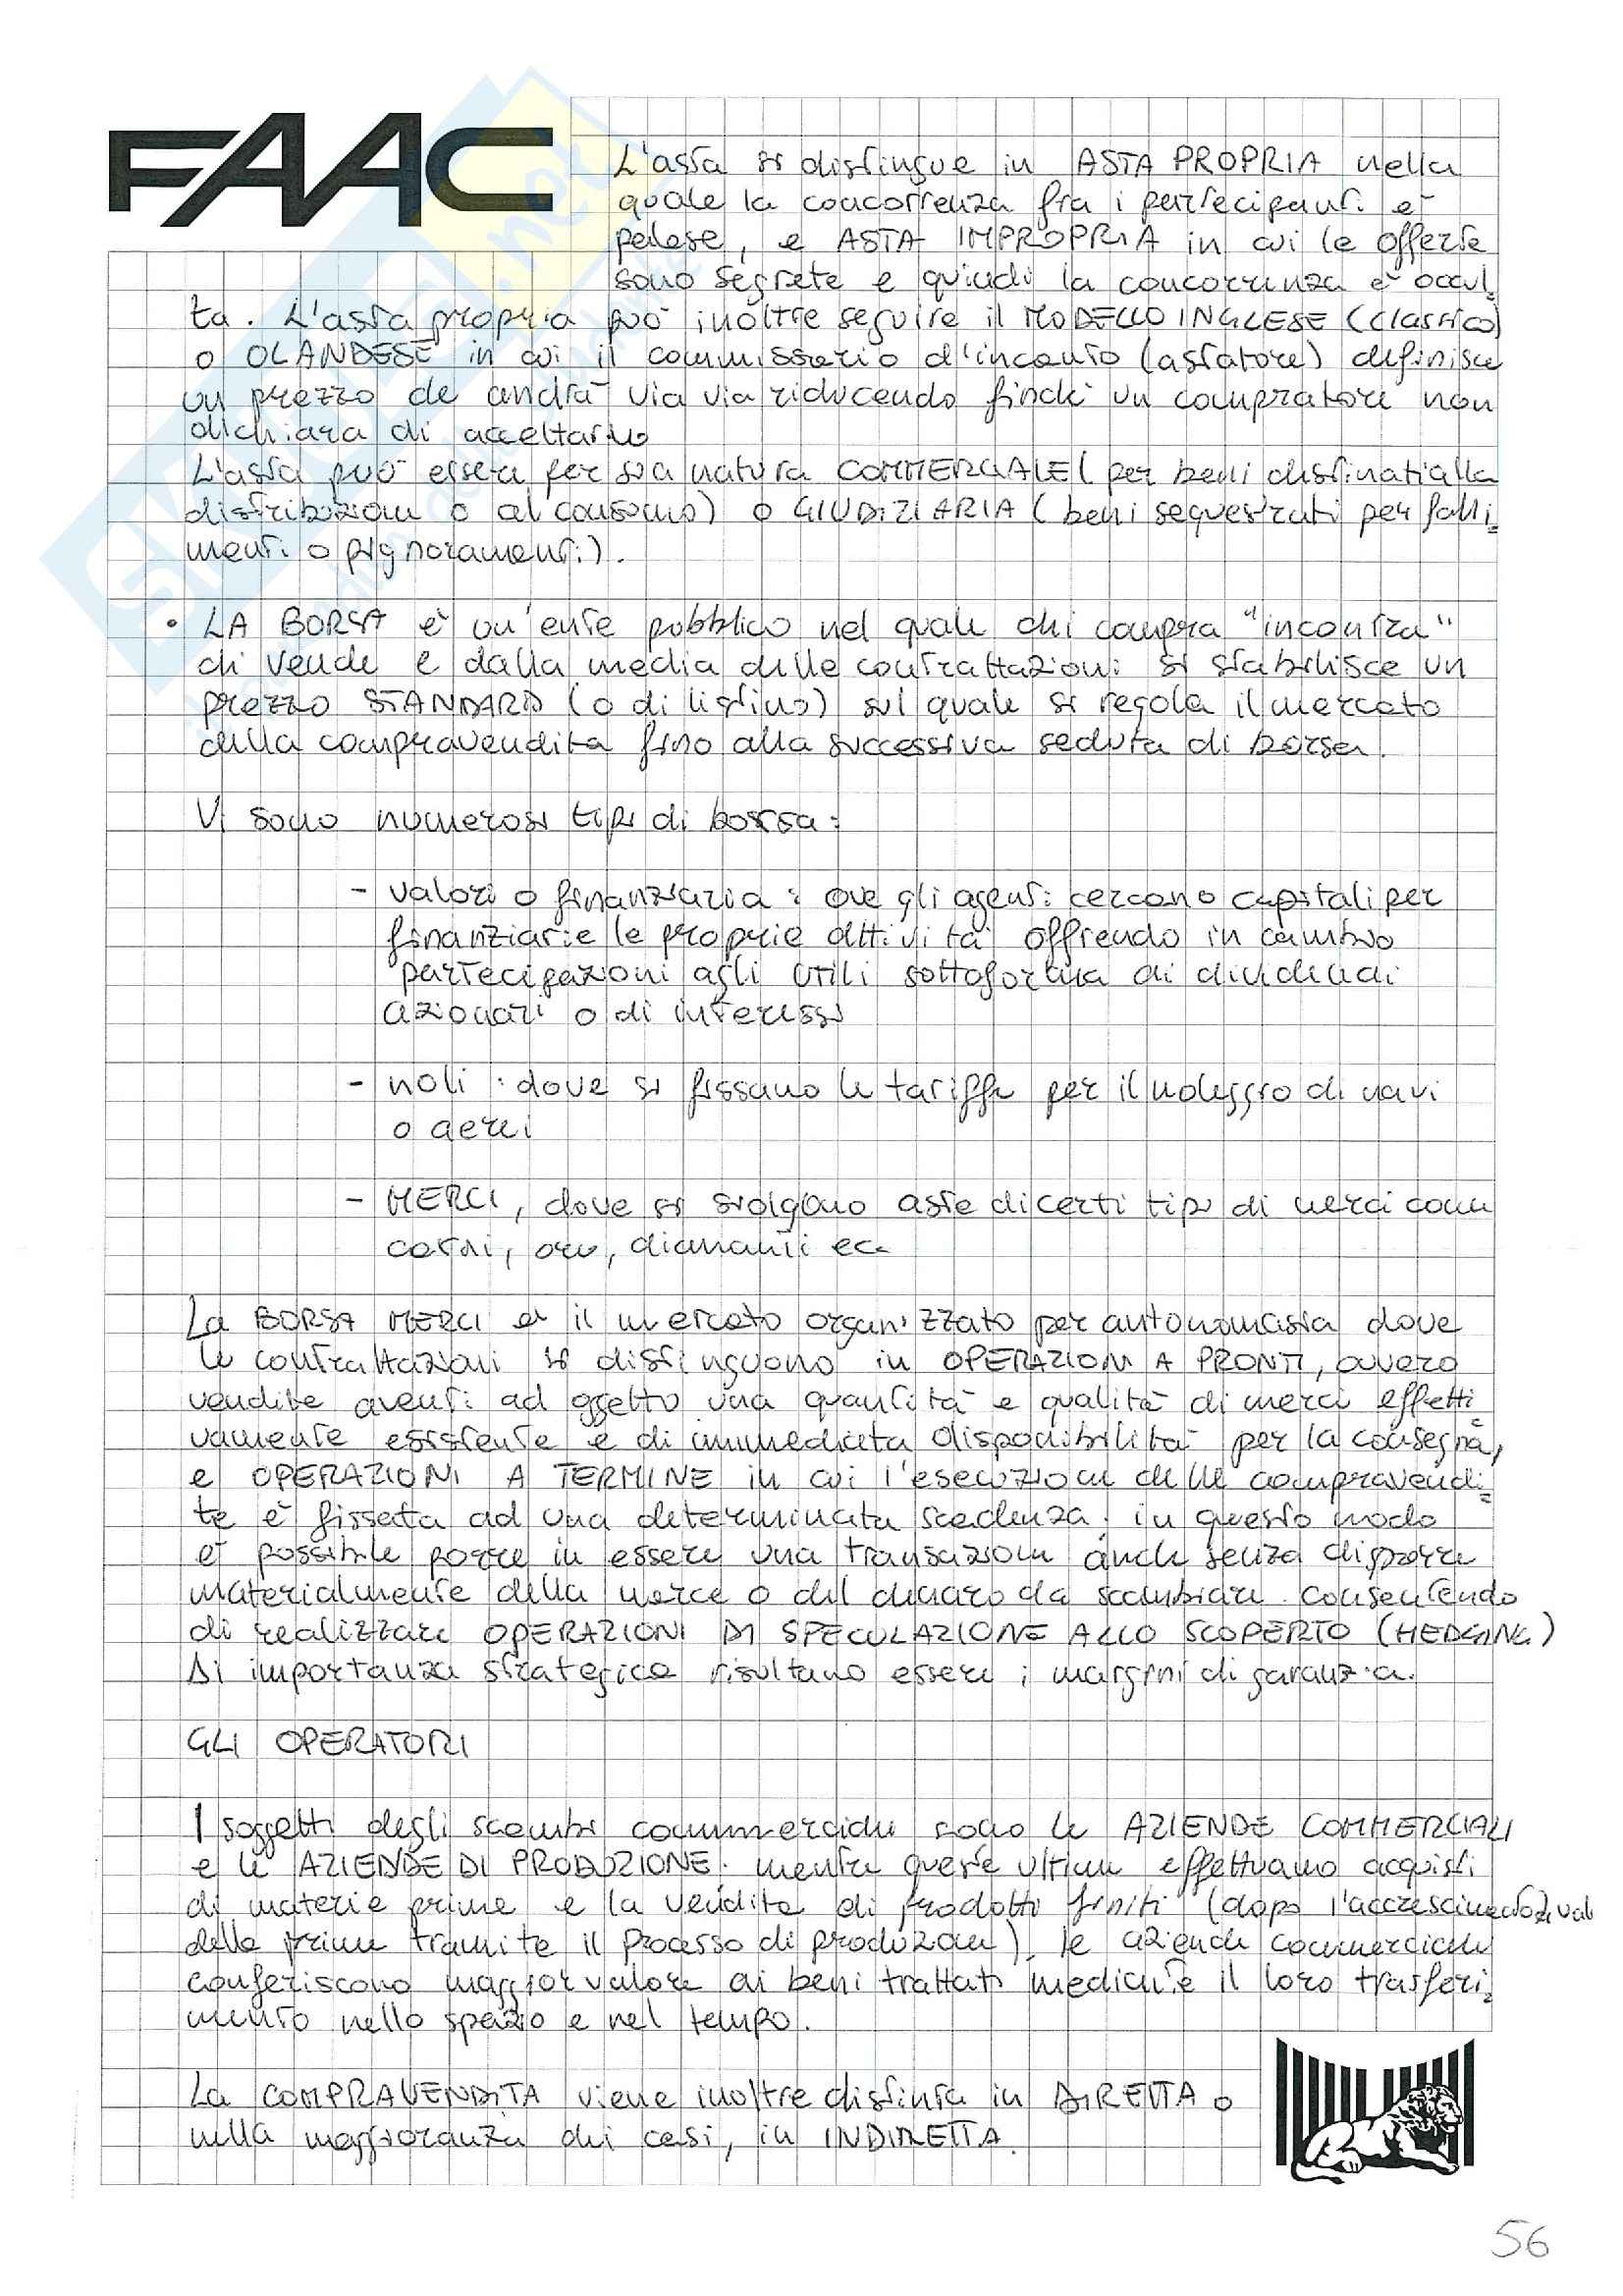 FAAC
L'asta si distingue in ASTA PROPRIA nella
quale la concorrenza fra i partecipanti è
palese, e ASTA IMPROPRIA in cui le offerte
sono segrete e quindi la concorrenza è occul=
ta. L'asta propria può inoltre seguire il MODELLO INGLESE (classico)
o OLANDESE in cui il commissario d'incanto (astatore) definisce
un prezzo che andrà via via riducendo finché un compratore non
dichiara di accettarlo
L'asta può essere per sua natura COMMERCIALE (per beni destinati alla
distribuzione o al consumo) o GIUDIZIARIA (beni sequestrati per falli=
menti o pignoramenti).
• LA BORSA è un'ente pubblico nel quale chi compra "incontra"
chi vende e dalla media delle contrattazioni si stabilisce un
prezzo STANDARD (o di listino) sul quale si regola il mercato
della compravendita fino alla successiva seduta di borsa.
Vi sono numerosi tipi di borsa:
- valori o finanziaria: ove gli agenti cercano capitali per
finanziarie le proprie attività offrendo in cambio
partecipazioni agli utili sottoforma di dividendi
azionari o di interessi
- noli: dove si fissano le tariffe per il noleggio di navi
o aerei
- MERCI, dove si svolgono aste di certi tipi di merci come
carni, oro, diamanti ecc
La BORSA MERCI è il mercato organizzato per antonomasia dove
le contrattazioni si distinguono in OPERAZIONI A PRONTI, ovvero
vendite aventi ad oggetto una quantità e qualità di merci effetti=
vamente esistente e di immediata disponibilità per la consegna,
e OPERAZIONI A TERMINE in cui l'esecuzione delle compravendi=
te è fissata ad una determinata scadenza; in questo modo
è possibile porre in essere una transazione anche senza disporre
materialmente della merce o del denaro da scambiare consentendo
di realizzare OPERAZIONI DI SPECULAZIONE ALLO SCOPERTO (HEDGING)
Di importanza strategica risultano essere i margini di garanzia.
GLI OPERATORI
I soggetti degli scambi commerciali sono le AZIENDE COMMERCIALI
e le AZIENDE DI PRODUZIONE; mentre queste ultime effettuano acquisti
di materie prime e la vendita di prodotti finiti (dopo l'accrescimento di val
delle prime tramite il processo di produzione), le aziende commerciali
conferiscono maggior valore ai beni trattati mediante il loro trasferi=
mento nello spazio e nel tempo.
La COMPRAVENDITA viene inoltre distinta in DIRETTA o
nella maggioranza dei casi, in INDIRETTA.
56